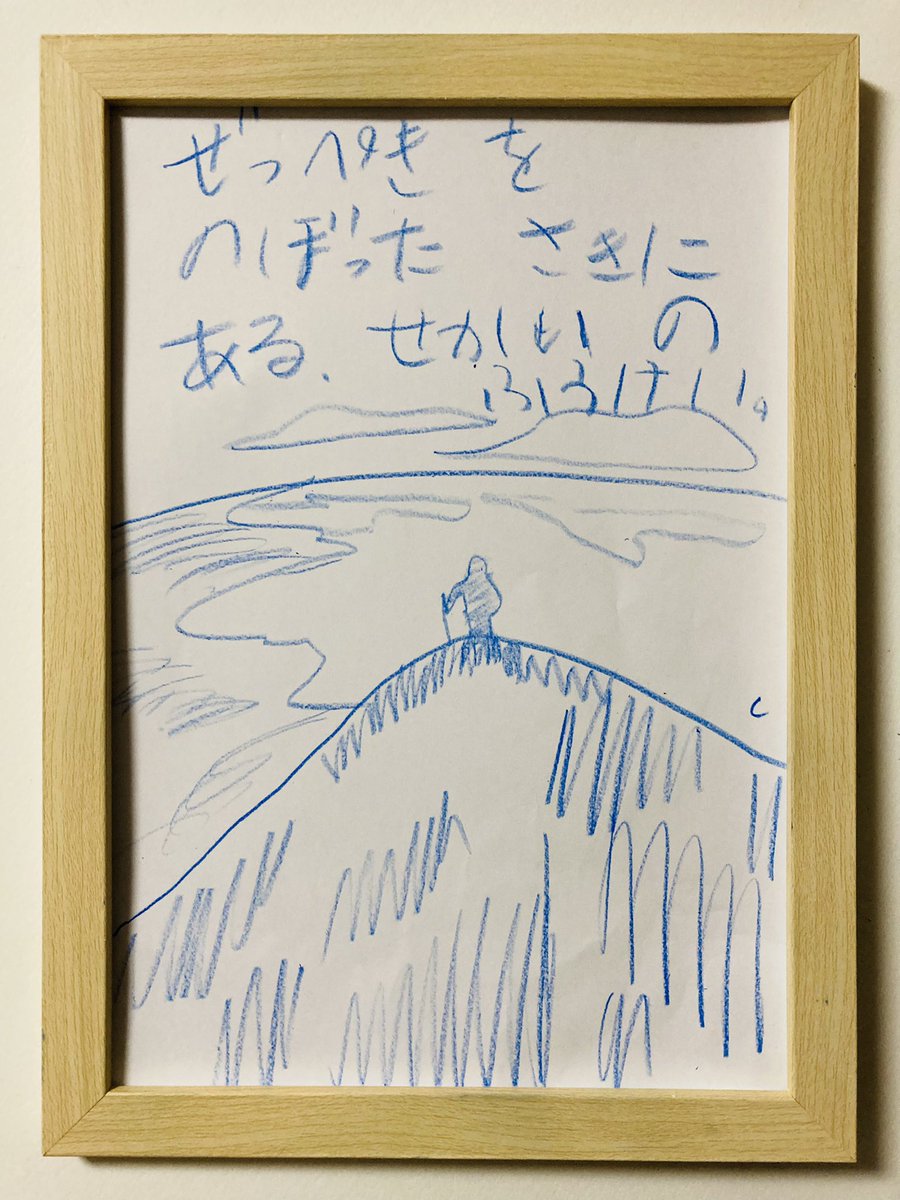 ぜっぺき を
のぼった さきに
ある、せかい の
ふうけい。